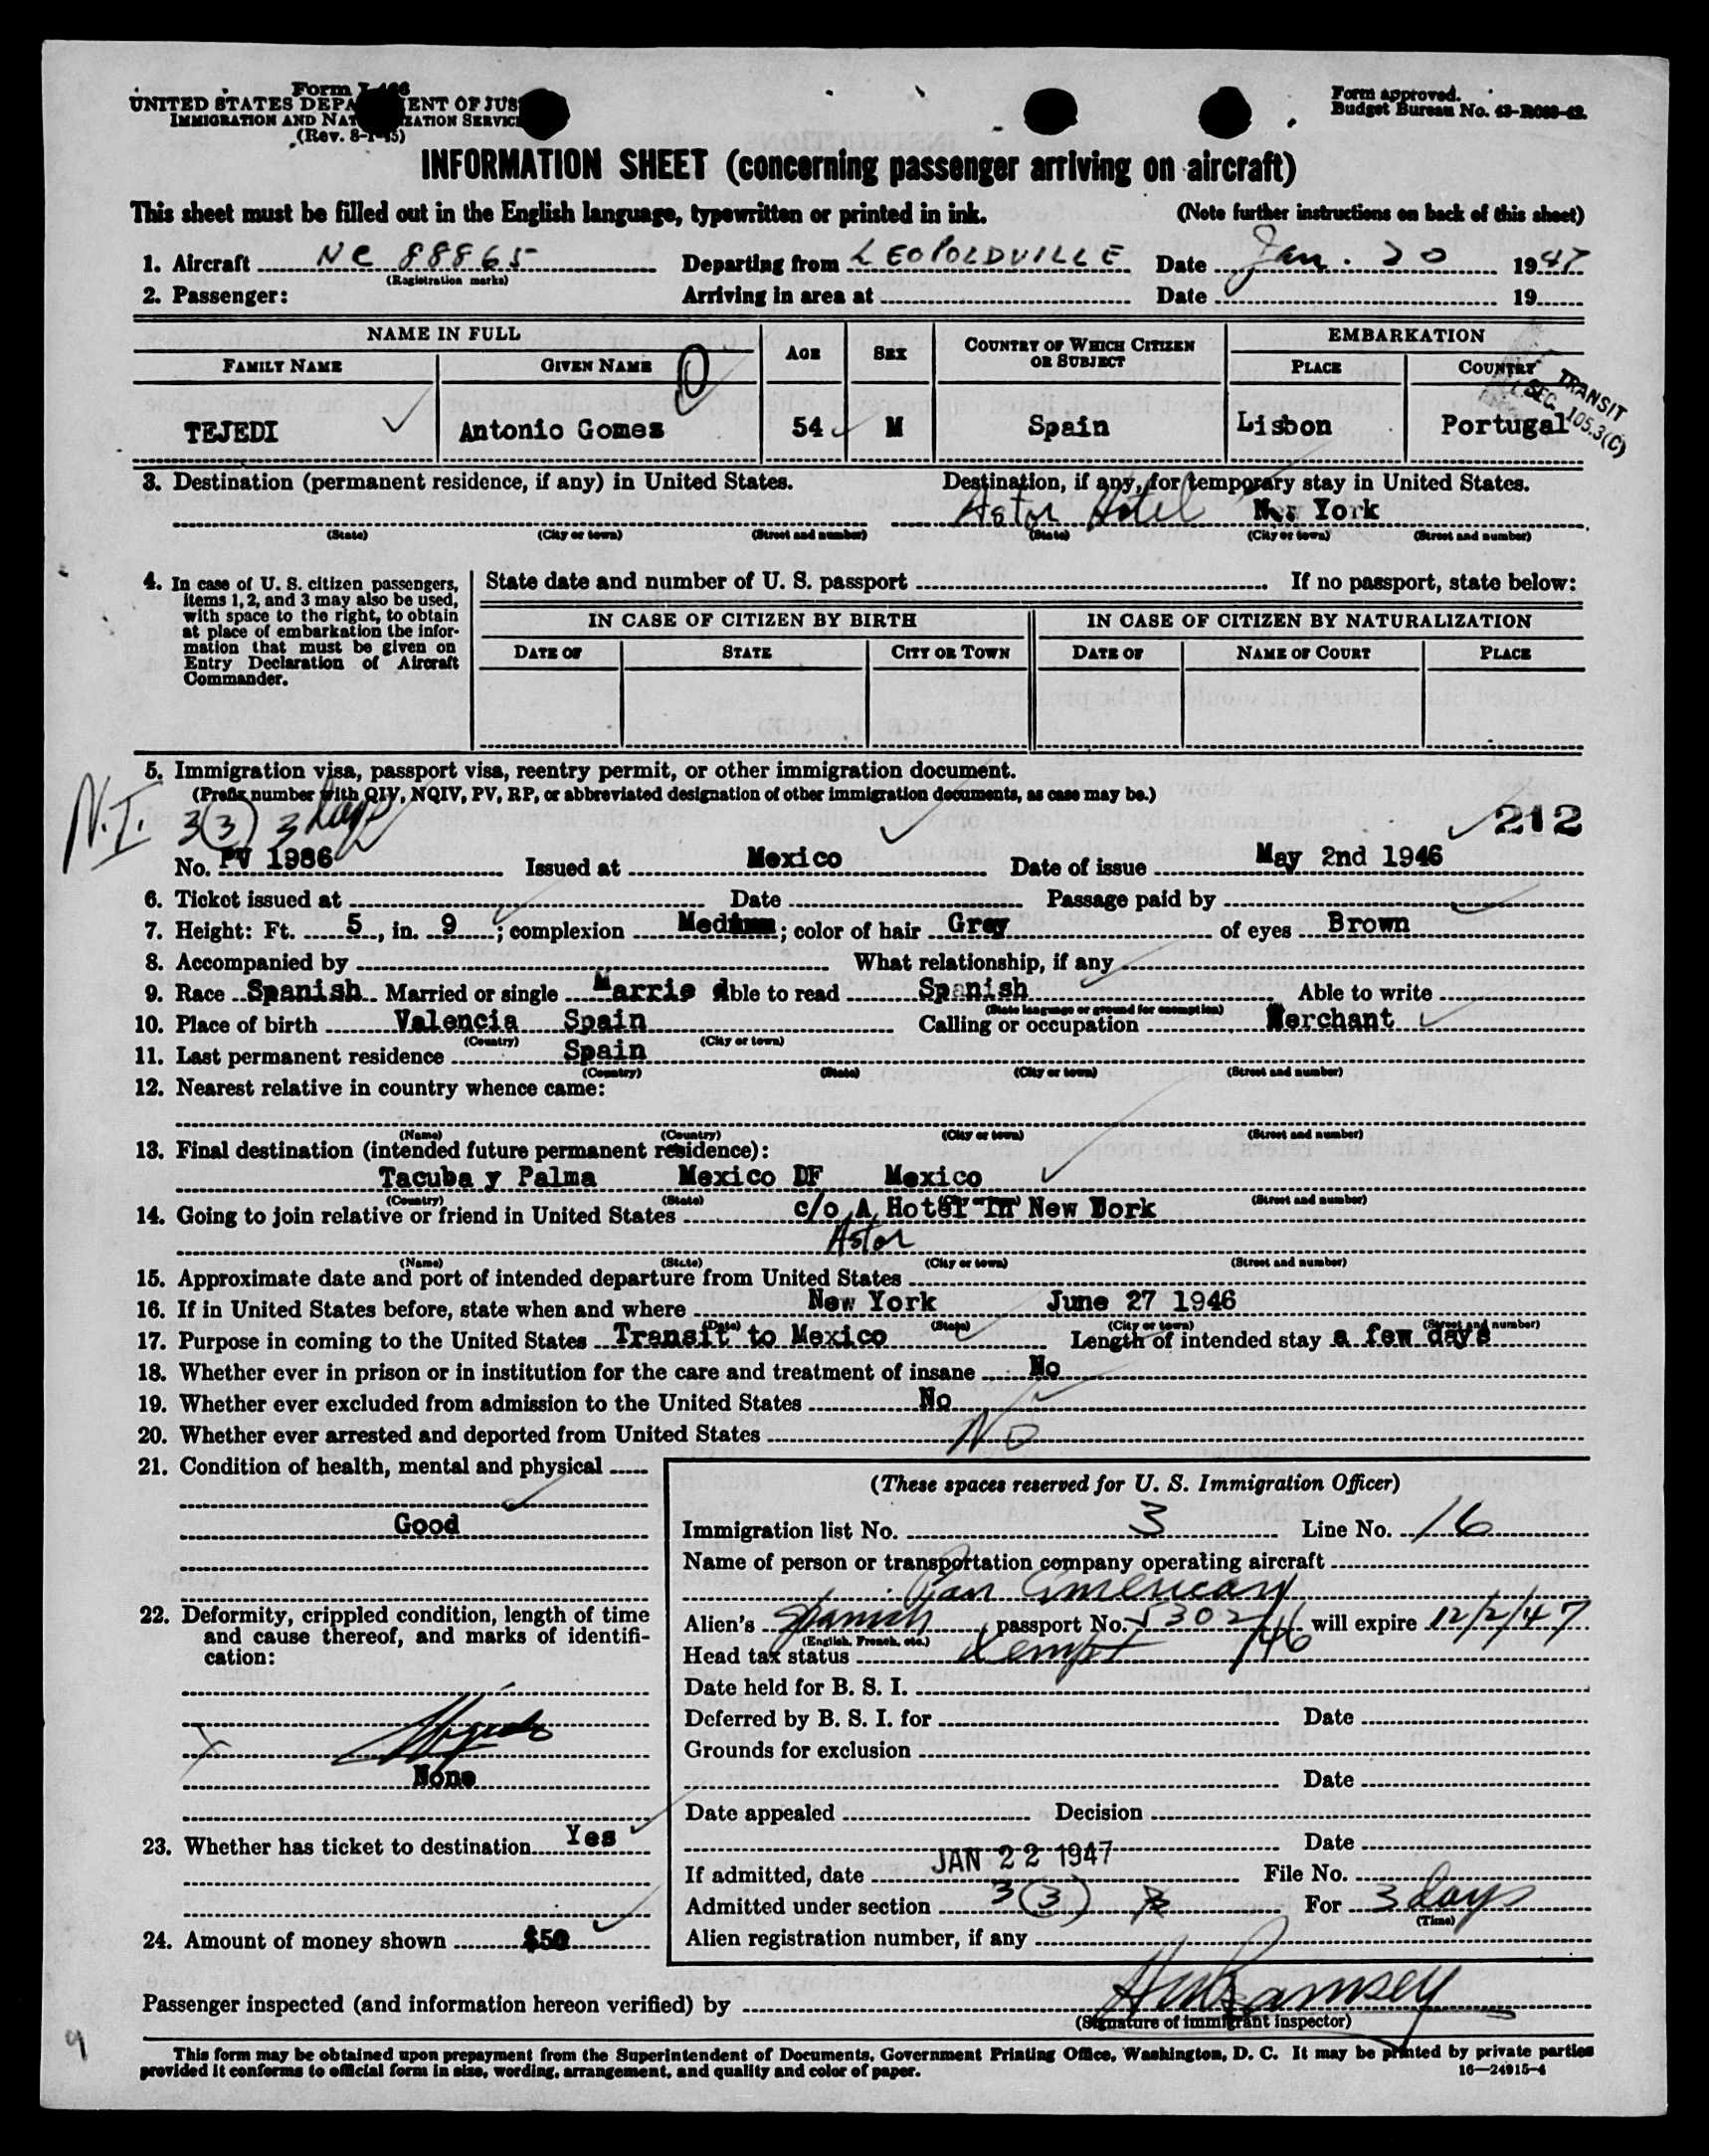 Form I-466
UNITED STATES DEPA ENT OF JUS
IMMIGRATION AND NAT ZATION SERVIC
(Rev. 8-1-45)
Form approved.
Budget Bureau No. 43-R083-42.
INFORMATION SHEET (concerning passenger arriving on aircraft)
This sheet must be filled out in the English language, typewritten or printed in ink. (Note further instructions on back of this sheet)
1. Aircraft NC 88865 Departing from LEOPOLDVILLE Date Jan. 20 1947
(Registration marks)
2. Passenger: Arriving in area at Date 19
NAME IN FULL AGE SEX COUNTRY OF WHICH CITIZEN OR SUBJECT EMBARKATION
FAMILY NAME GIVEN NAME PLACE COUNTRY
TRANSIT
SEC. 105.3(C)
TEJEDI Antonio Gomes 54 M Spain Lisbon Portugal
3. Destination (permanent residence, if any) in United States. Destination, if any, for temporary stay in United States.
Astor Hotel New York
(State) (City or town) (Street and number) (State) (City or town) (Street and number)
4. In case of U. S. citizen passengers,
items 1, 2, and 3 may also be used,
with space to the right, to obtain
at place of embarkation the infor-
mation that must be given on
Entry Declaration of Aircraft
Commander.
State date and number of U. S. passport If no passport, state below:
IN CASE OF CITIZEN BY BIRTH IN CASE OF CITIZEN BY NATURALIZATION
DATE OF STATE CITY OR TOWN DATE OF NAME OF COURT PLACE
5. Immigration visa, passport visa, reentry permit, or other immigration document.
(Prefix number with QIV, NQIV, PV, RP, or abbreviated designation of other immigration documents, as case may be.)
N.I. 3(3) 3 days 212
No. PV 1986 Issued at Mexico Date of issue May 2nd 1946
6. Ticket issued at Date Passage paid by
7. Height: Ft. 5, in. 9; complexion Medium; color of hair Grey of eyes Brown
8. Accompanied by What relationship, if any
9. Race Spanish Married or single Marrie d Able to read Spanish Able to write
(State language or ground for exemption)
10. Place of birth Valencia Spain Calling or occupation Merchant
(Country) (City or town)
11. Last permanent residence Spain
(Country) (State) (City or town) (Street and number)
12. Nearest relative in country whence came:
(Name) (Country) (City or town) (Street and number)
13. Final destination (intended future permanent residence):
Tacuba y Palma Mexico DF Mexico
(Country) (State) (City or town) (Street and number)
14. Going to join relative or friend in United States c/o A Hotel in New York
Astor
(Name) (State) (City or town) (Street and number)
15. Approximate date and port of intended departure from United States
16. If in United States before, state when and where New York June 27 1946
(Date) (State) (City or town) (Street and number)
17. Purpose in coming to the United States Transit to Mexico Length of intended stay a few days
18. Whether ever in prison or in institution for the care and treatment of insane No
19. Whether ever excluded from admission to the United States No
20. Whether ever arrested and deported from United States No
21. Condition of health, mental and physical
Good
22. Deformity, crippled condition, length of time
and cause thereof, and marks of identifi-
cation:
X
None
23. Whether has ticket to destination Yes
24. Amount of money shown $50
(These spaces reserved for U. S. Immigration Officer)
Immigration list No. 3 Line No. 16
Name of person or transportation company operating aircraft
Pan American
Alien's Spanish passport No. 5302/46 will expire 12/2/47
(English, French, etc.)
Head tax status Xempt
Date held for B. S. I.
Deferred by B. S. I. for Date
Grounds for exclusion
Date
Date appealed Decision
Date
If admitted, date JAN 22 1947 File No.
Admitted under section 3(3) For 3 days
(Time)
Alien registration number, if any
Passenger inspected (and information hereon verified) by Ramsey
(Signature of immigrant inspector)
9
This form may be obtained upon prepayment from the Superintendent of Documents, Government Printing Office, Washington, D. C. It may be printed by private parties
provided it conforms to official form in size, wording, arrangement, and quality and color of paper. 16—24915-4